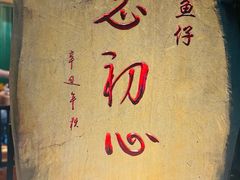 鱼仔
忘初心
辛丑年秋